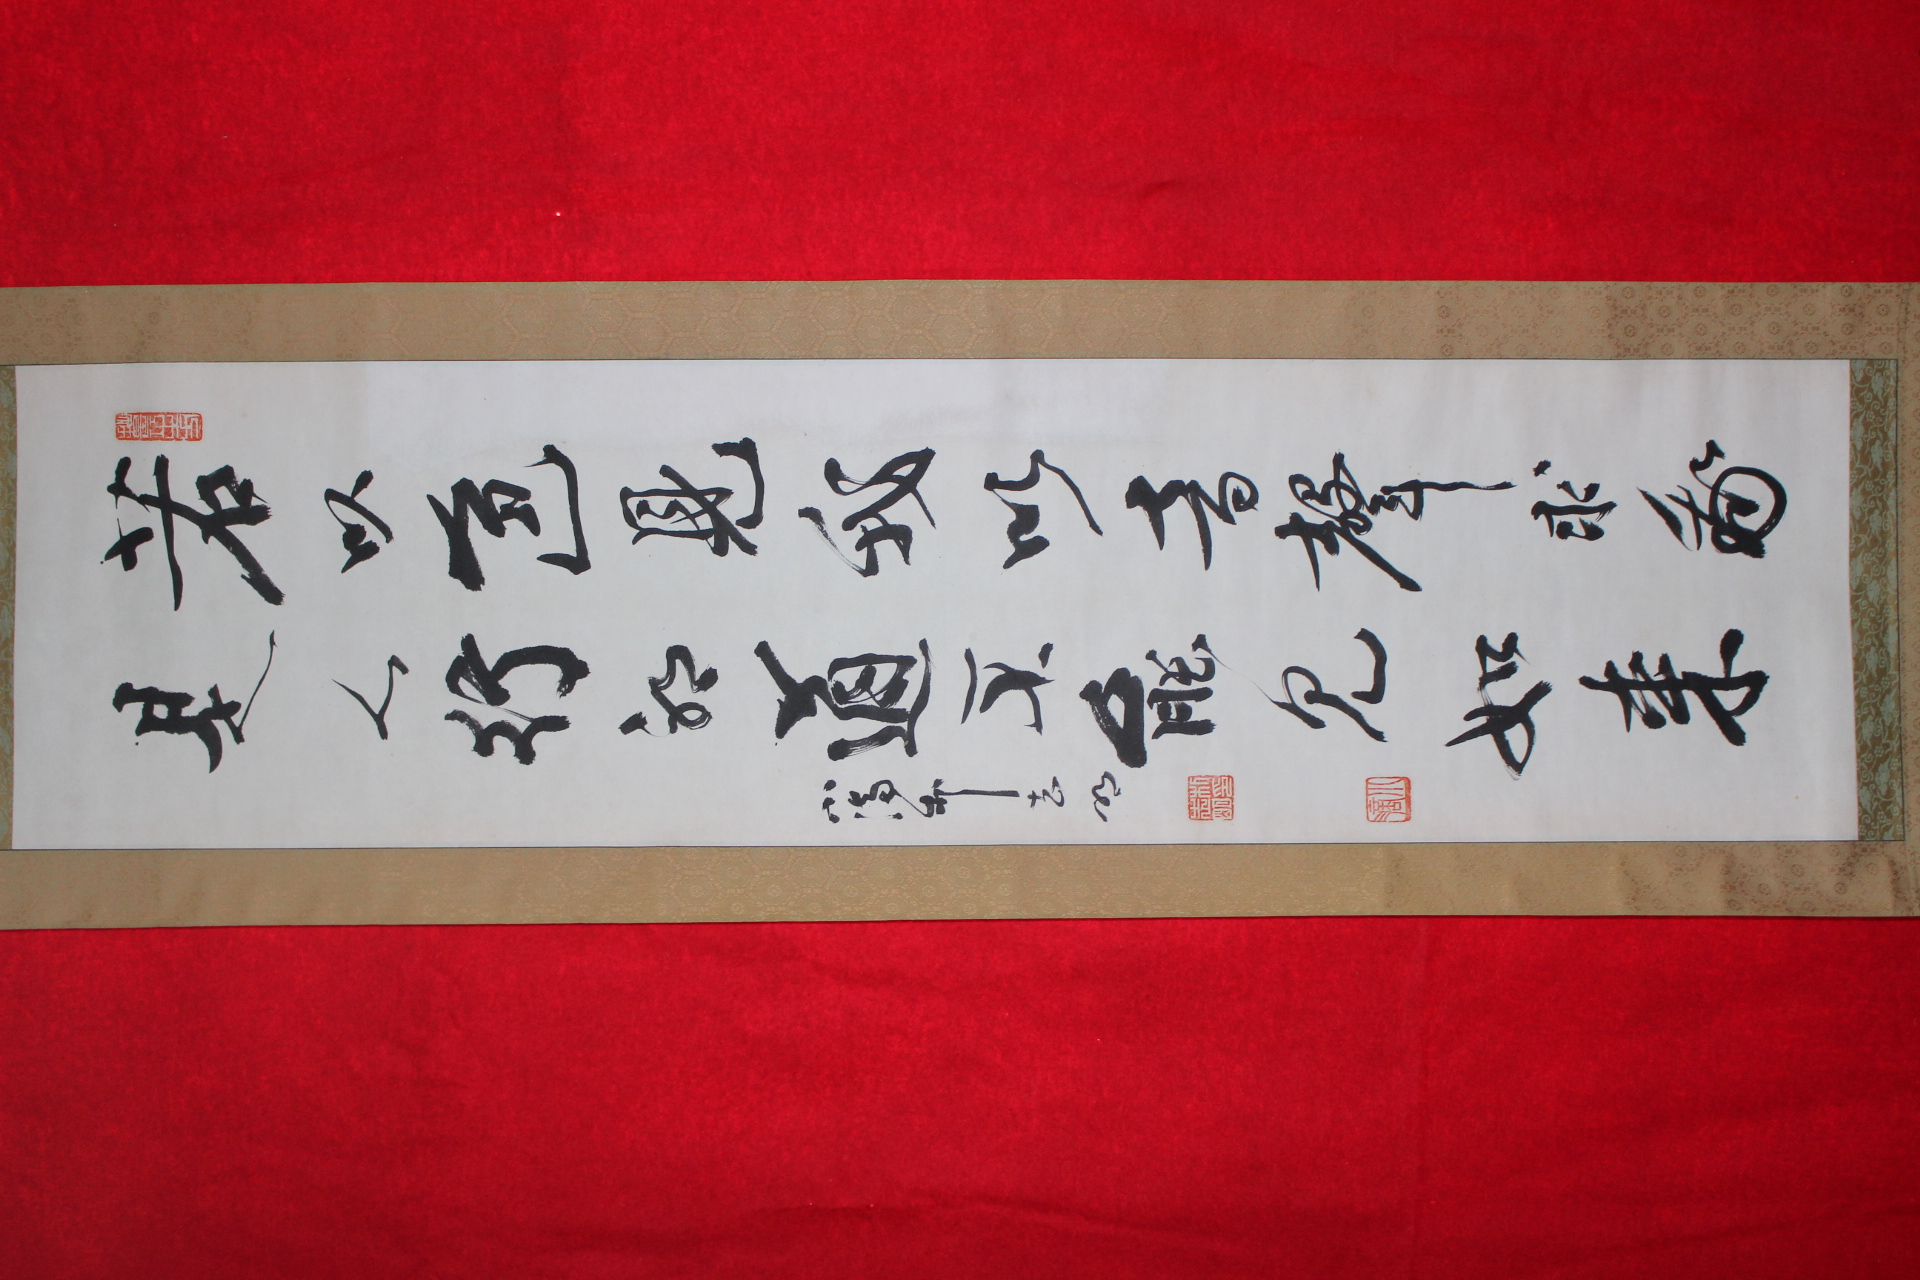 若以色見我以音聲求我
是人行邪道不能見如来
朴志明